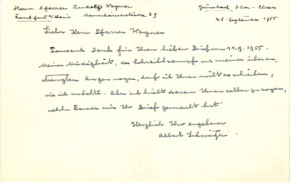 Herrn Pfarrer Rudolf Wagner
Frankfurt a/Main
Günsbach Ober-Elsass
28. September 1955
Lieber Herr Pfarrer Wagner
Tausend Dank für Ihren lieben Brief vom 11.9.1955.
Meine Müdigkeit, der Schreibkrampf und meine
Augen sagen, darf ich Ihnen nicht schreiben,
wie ich möchte. Aber ich Ihnen selber zu sagen,
welche Freude mir Ihr Brief gemacht hat.
Herzlich Ihr ergebener
Albert Schweitzer